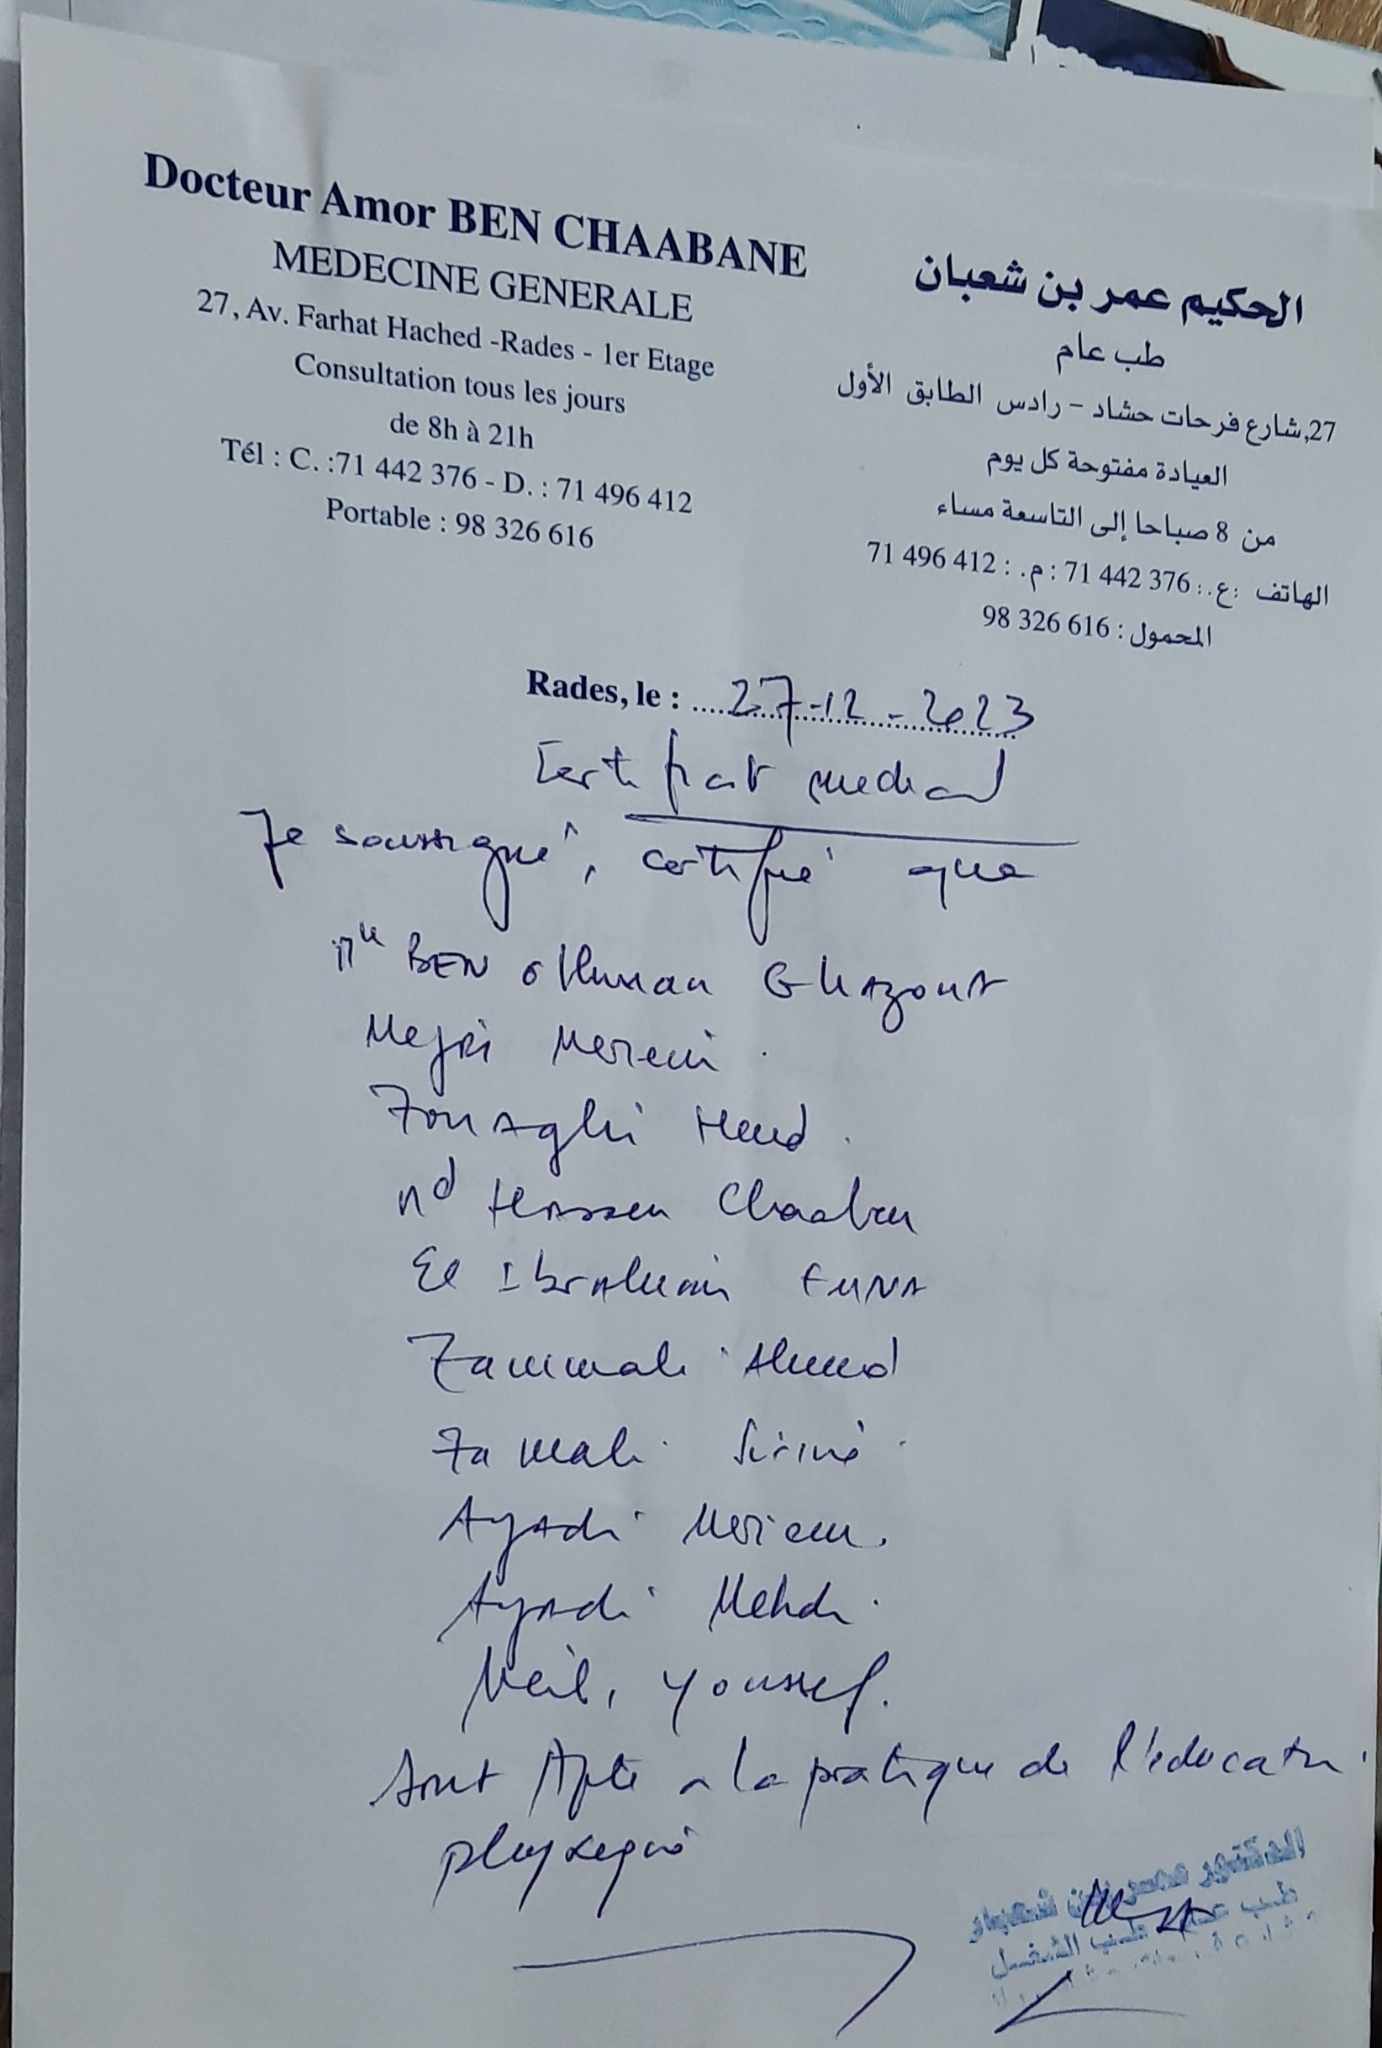 Docteur Amor BEN CHAABANE
MEDECINE GENERALE
27, Av. Farhat Hached -Rades - 1er Etage
Consultation tous les jours
de 8h à 21h
Tél : C. :71 442 376 - D. : 71 496 412
Portable : 98 326 616
الحكيم عمر بن شعبان
طب عام
27,شارع فرحات حشاد – رادس الطابق الأول
العيادة مفتوحة كل يوم
من 8 صباحا إلى التاسعة مساء
الهاتف :ع.: 71 442 376 : م. : 71 496 412
المحمول : 98 326 616
Rades, le : 27-12-2023
Certificat medical
Je soussigné, certifie que
Mlle BEN othman Ghazoua
Mejri Meriem
Zouaghi Hend
Md Hassen Chaaben
El Ibrahim EMNA
Zammali Ahmed
Zamali Sirine
Ayadi Meriem
Ayadi Mehdi
Neil, Youssef.
Sont Apte a la pratique de l'education
physique
الدكتور عمر بن شعبان
طب عام طب الشغل